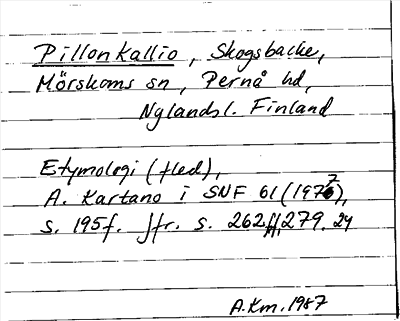 Pillonkallio, Skogsbacke,
Mörskoms sn, Pernå hd,
Nylandsl. Finland
Etymologi (fled),
A. Kartano i SNF 61 (1977),
s. 195f. Jfr. s. 262ff, 279. 24
A.Km. 1987